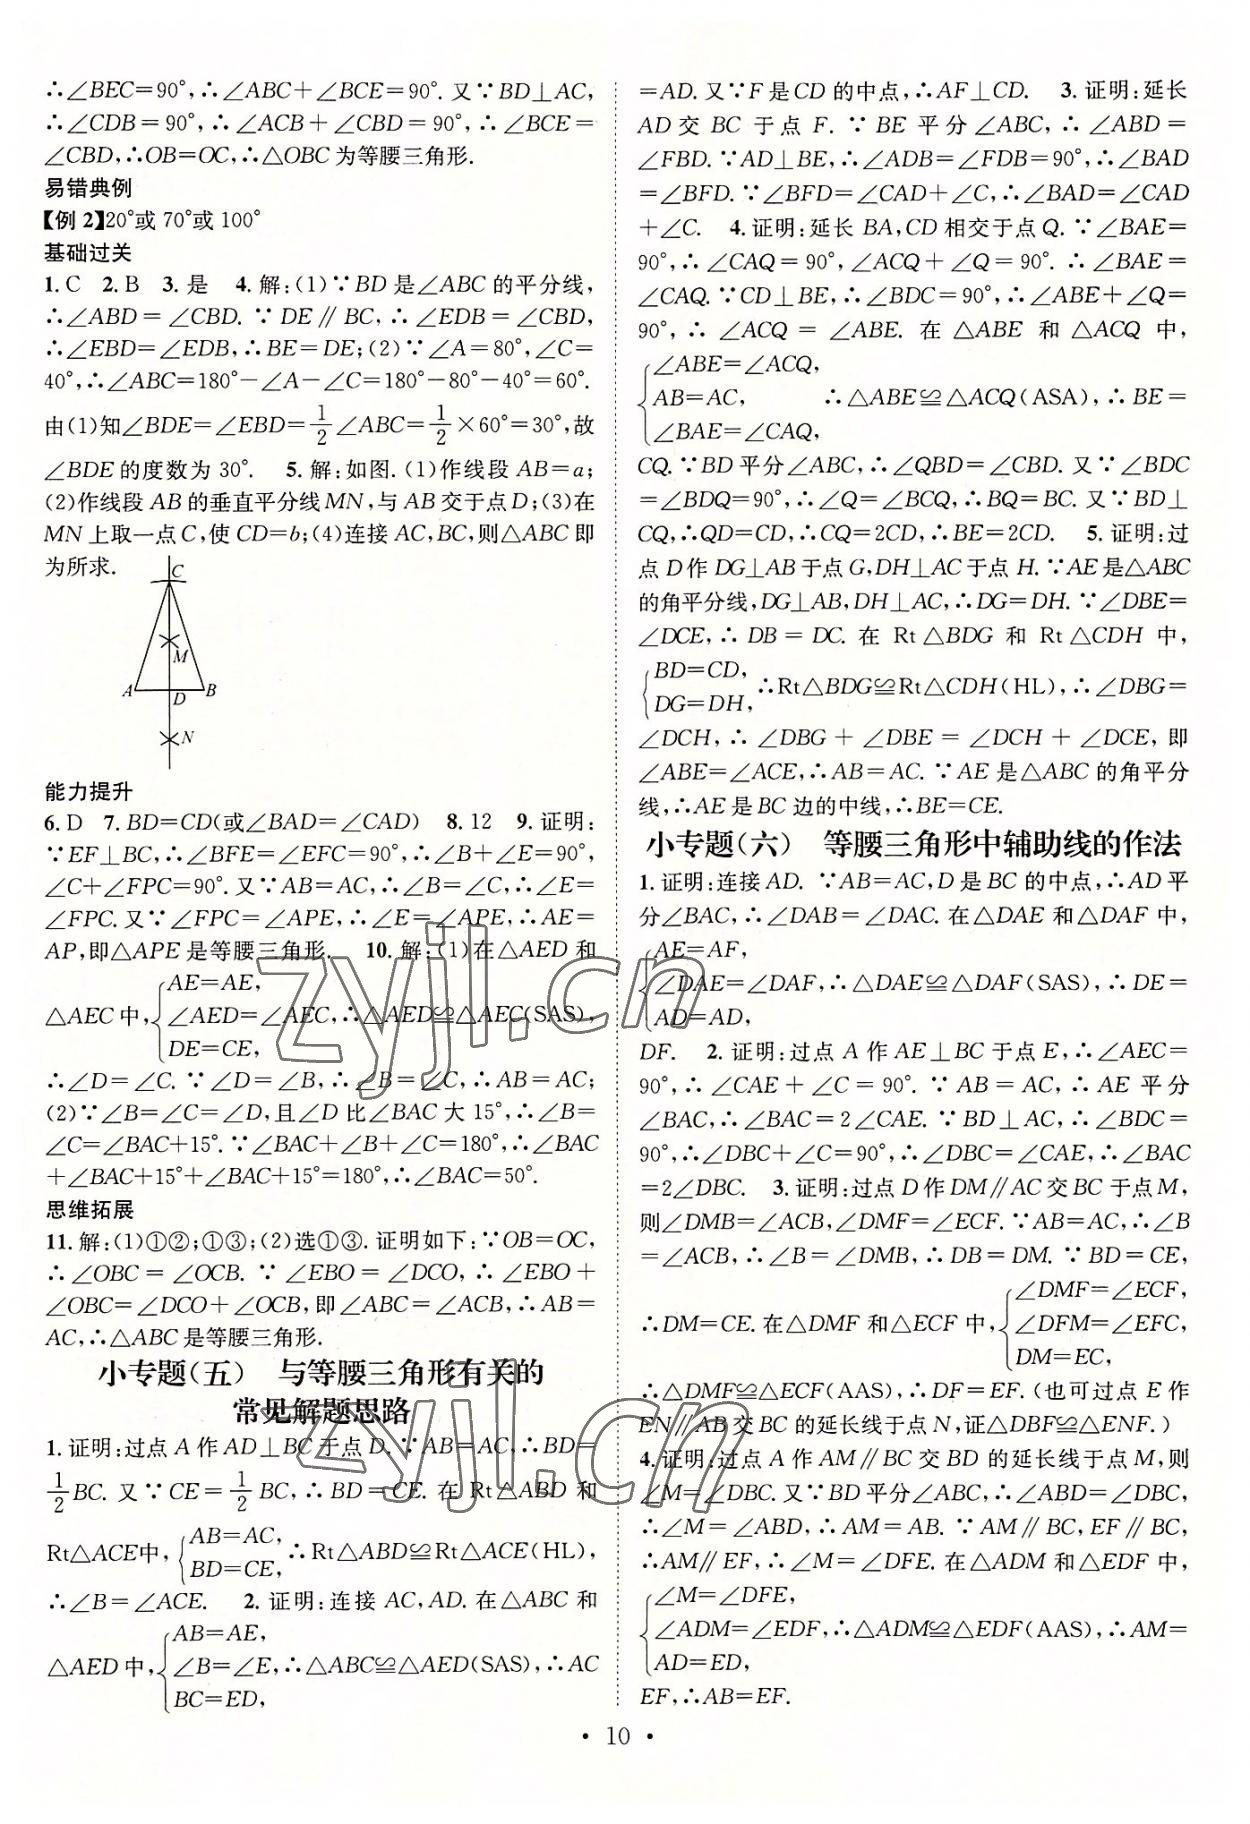 ∴∠BEC=90°,∴∠ABC+∠BCE=90°.又∵BD⊥AC,
∴∠CDB=90°,∴∠ACB+∠CBD=90°,∴∠BCE=
∠CBD,∴OB=OC,∴△OBC为等腰三角形.
易错典例
【例2】20°或70°或100°
基础过关
1.C 2.B 3.是 4.解:(1)∵BD是∠ABC的平分线,
∴∠ABD=∠CBD.∵DE∥BC,∴∠EDB=∠CBD,
∴∠EBD=∠EDB,∴BE=DE;(2)∵∠A=80°,∠C=
40°,∴∠ABC=180°-∠A-∠C=180°-80°-40°=60°.
由(1)知∠BDE=∠EBD=1/2∠ABC=1/2×60°=30°,故
∠BDE的度数为30°. 5.解:如图.(1)作线段AB=a;
(2)作线段AB的垂直平分线MN,与AB交于点D;(3)在
MN上取一点C,使CD=b;(4)连接AC,BC,则△ABC即
为所求.
C
M
A
D
B
N
能力提升
6.D 7.BD=CD(或∠BAD=∠CAD) 8.12 9.证明:
∵EF⊥BC,∴∠BFE=∠EFC=90°,∴∠B+∠E=90°,
∠C+∠FPC=90°.又∵AB=AC,∴∠B=∠C,∴∠E=
∠FPC.又∵∠FPC=∠APE,∴∠E=∠APE,∴AE=
AP,即△APE是等腰三角形. 10.解:(1)在△AED和
△AEC中,{AE=AE,
∠AED=∠AEC,∴△AED≌△AEC(SAS),
DE=CE,
∴∠D=∠C.∵∠D=∠B,∴∠B=∠C,∴AB=AC;
(2)∵∠B=∠C=∠D,且∠D比∠BAC大15°,∴∠B=
∠C=∠BAC+15°.∵∠BAC+∠B+∠C=180°,∴∠BAC
+∠BAC+15°+∠BAC+15°=180°,∴∠BAC=50°.
思维拓展
11.解:(1)①②;①③;(2)选①③.证明如下:∵OB=OC,
∴∠OBC=∠OCB.∵∠EBO=∠DCO,∴∠EBO+
∠OBC=∠DCO+∠OCB,即∠ABC=∠ACB,∴AB=
AC,∴△ABC是等腰三角形.
小专题(五) 与等腰三角形有关的
常见解题思路
1.证明:过点A作AD⊥BC于点D.∵AB=AC,∴BD=
1/2BC.又∵CE=1/2BC,∴BD=CE.在Rt△ABD和
Rt△ACE中,{AB=AC,
BD=CE,∴Rt△ABD≌Rt△ACE(HL),
∴∠B=∠ACE. 2.证明:连接AC,AD.在△ABC和
△AED中,{AB=AE,
∠B=∠E,∴△ABC≌△AED(SAS),∴AC
BC=ED,
=AD.又∵F是CD的中点,∴AF⊥CD. 3.证明:延长
AD交BC于点F.∵BE平分∠ABC,∴∠ABD=
∠FBD.∵AD⊥BE,∴∠ADB=∠FDB=90°,∴∠BAD
=∠BFD.∵∠BFD=∠CAD+∠C,∴∠BAD=∠CAD
+∠C. 4.证明:延长BA,CD相交于点Q.∵∠BAE=
90°,∴∠CAQ=90°,∠ACQ+∠Q=90°.∴∠BAE=
∠CAQ.∵CD⊥BE,∴∠BDC=90°,∴∠ABE+∠Q=
90°,∴∠ACQ=∠ABE.在△ABE和△ACQ中,
{∠ABE=∠ACQ,
AB=AC, ∴△ABE≌△ACQ(ASA),∴BE=
∠BAE=∠CAQ,
CQ.∵BD平分∠ABC,∴∠QBD=∠CBD.又∵∠BDC
=∠BDQ=90°,∴∠Q=∠BCQ,∴BQ=BC.又∵BD⊥
CQ,∴QD=CD,∴CQ=2CD,∴BE=2CD. 5.证明:过
点D作DG⊥AB于点G,DH⊥AC于点H.∵AE是△ABC
的角平分线,DG⊥AB,DH⊥AC,∴DG=DH.∵∠DBE=
∠DCE,∴DB=DC.在Rt△BDG和Rt△CDH中,
{BD=CD,
DG=DH,∴Rt△BDG≌Rt△CDH(HL),∴∠DBG=
∠DCH,∴∠DBG+∠DBE=∠DCH+∠DCE,即
∠ABE=∠ACE,∴AB=AC.∵AE是△ABC的角平分
线,∴AE是BC边的中线,∴BE=CE.
小专题(六) 等腰三角形中辅助线的作法
1.证明:连接AD.∵AB=AC,D是BC的中点,∴AD平
分∠BAC,∴∠DAB=∠DAC.在△DAE和△DAF中,
{AE=AF,
∠DAE=∠DAF,∴△DAE≌△DAF(SAS),∴DE=
AD=AD,
DF. 2.证明:过点A作AE⊥BC于点E,∴∠AEC=
90°,∴∠CAE+∠C=90°.∵AB=AC,∴AE平分
∠BAC,∴∠BAC=2∠CAE.∵BD⊥AC,∴∠BDC=
90°,∴∠DBC+∠C=90°,∴∠DBC=∠CAE,∴∠BAC
=2∠DBC. 3.证明:过点D作DM∥AC交BC于点M,
则∠DMB=∠ACB,∠DMF=∠ECF.∵AB=AC,∴∠B
=∠ACB,∴∠B=∠DMB,∴DB=DM.∵BD=CE,
∴DM=CE.在△DMF和△ECF中,{∠DMF=∠ECF,
∠DFM=∠EFC,
DM=EC,
∴△DMF≌△ECF(AAS),∴DF=EF.(也可过点E作
EN∥AB交BC的延长线于点N,证△DBF≌△ENF.)
4.证明:过点A作AM∥BC交BD的延长线于点M,则
∠M=∠DBC.又∵BD平分∠ABC,∴∠ABD=∠DBC,
∴∠M=∠ABD,∴AM=AB.∵AM∥BC,EF∥BC,
∴AM∥EF,∴∠M=∠DFE.在△ADM和△EDF中,
{∠M=∠DFE,
∠ADM=∠EDF,∴△ADM≌△EDF(AAS),∴AM=
AD=ED,
EF,∴AB=EF.
• 10 •
zyjl.cn
zyjl.cn